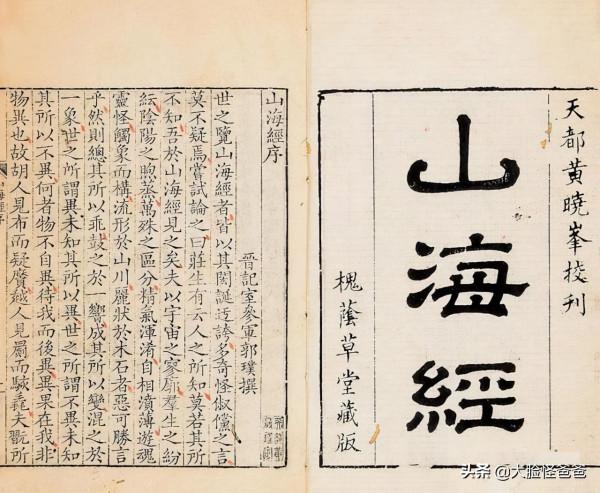 天都黃曉峯挍刊
山海經
槐蔭草堂藏版
山海經序
晉記室參軍郭璞撰
世之覽山海經者皆以其閎誕迃誇多奇怪俶儻之言
莫不疑焉嘗試論之曰莊生有云人之所知莫若其所
不知吾於山海經見之矣夫以宇宙之寥廓羣生之紛
紜陰陽之煦蒸萬殊之區分精氣渾淆自相濆薄遊魂
靈怪觸象而構流形於山川麗狀於木石者惡可勝言
乎然則總其所以乖鼓之於一響成其所以變混之於
一象世之所謂異未知其所以異世之所謂不異未知
其所以不異何者物不自異待我而後異異果在我非
物異也故胡人見布而疑黂越人見罽而駭毳夫翫所
头条 @大脸怪爸爸